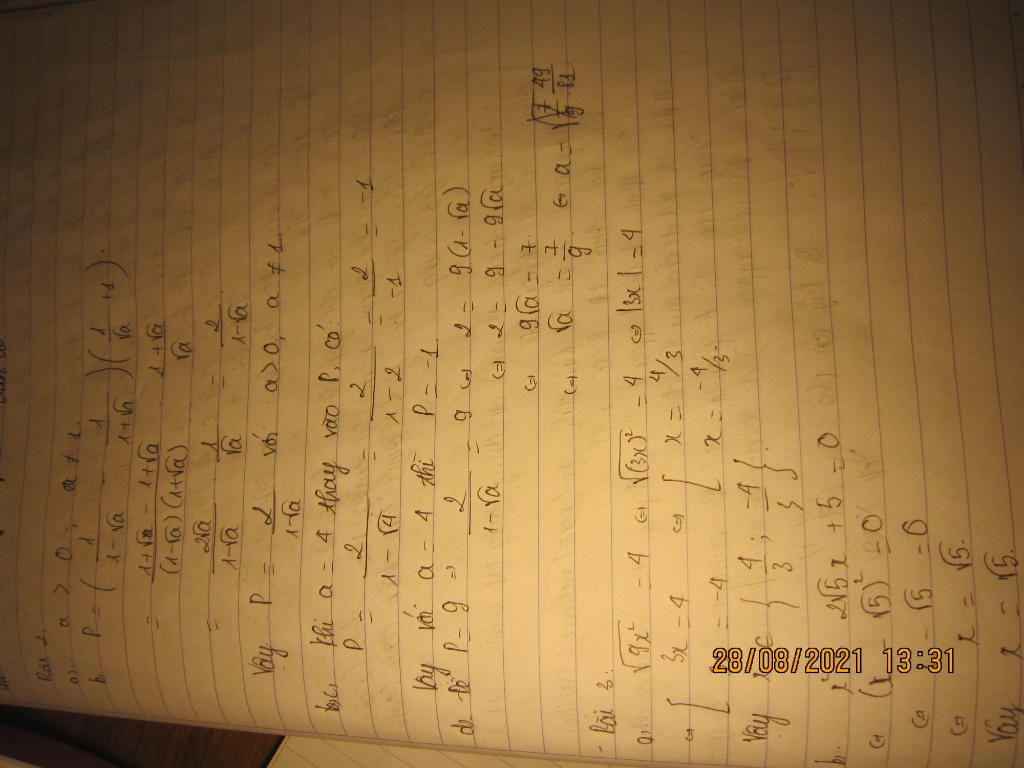 Bài 2.
a. a > 0 ; a ≠ 1.
b. P = ( 1/(1-√a) - 1/(1+√a) ) ( 1/√a + 1 ).
= (1+√a - 1+√a)/((1-√a)(1+√a)) (1+√a)/√a
= 2√a/(1-√a) 1/√a = 2/(1-√a)
Vậy P = 2/(1-√a) với a > 0, a ≠ 1.
c, Khi a = 4 thay vào P, có:
P = 2/(1-√4) = 2/(1-2) = 2/-1 = -1
Vậy với a = 4 thì P = -1.
d. Để P = 9 => 2/(1-√a) = 9 ⇔ 2 = 9(1-√a)
⇔ 2 = 9 - 9√a
⇔ 9√a = 7.
⇔ √a = 7/9 ⇔ a = 49/81
- Bài 3.
a, √9x² = 4 ⇔ √(3x)² = 4 ⇔ |3x| = 4
⇔ [ 3x = 4 ⇔ [ x = 4/3
= -4 x = -4/3.
Vậy x ∈ { 4/3 ; -4/3 }.
b. x² - 2√5x + 5 = 0
⇔ (x - √5)² = 0
⇔ x - √5 = 0
⇔ x = √5.
Vậy x = √5.
28/08/2021 13:31